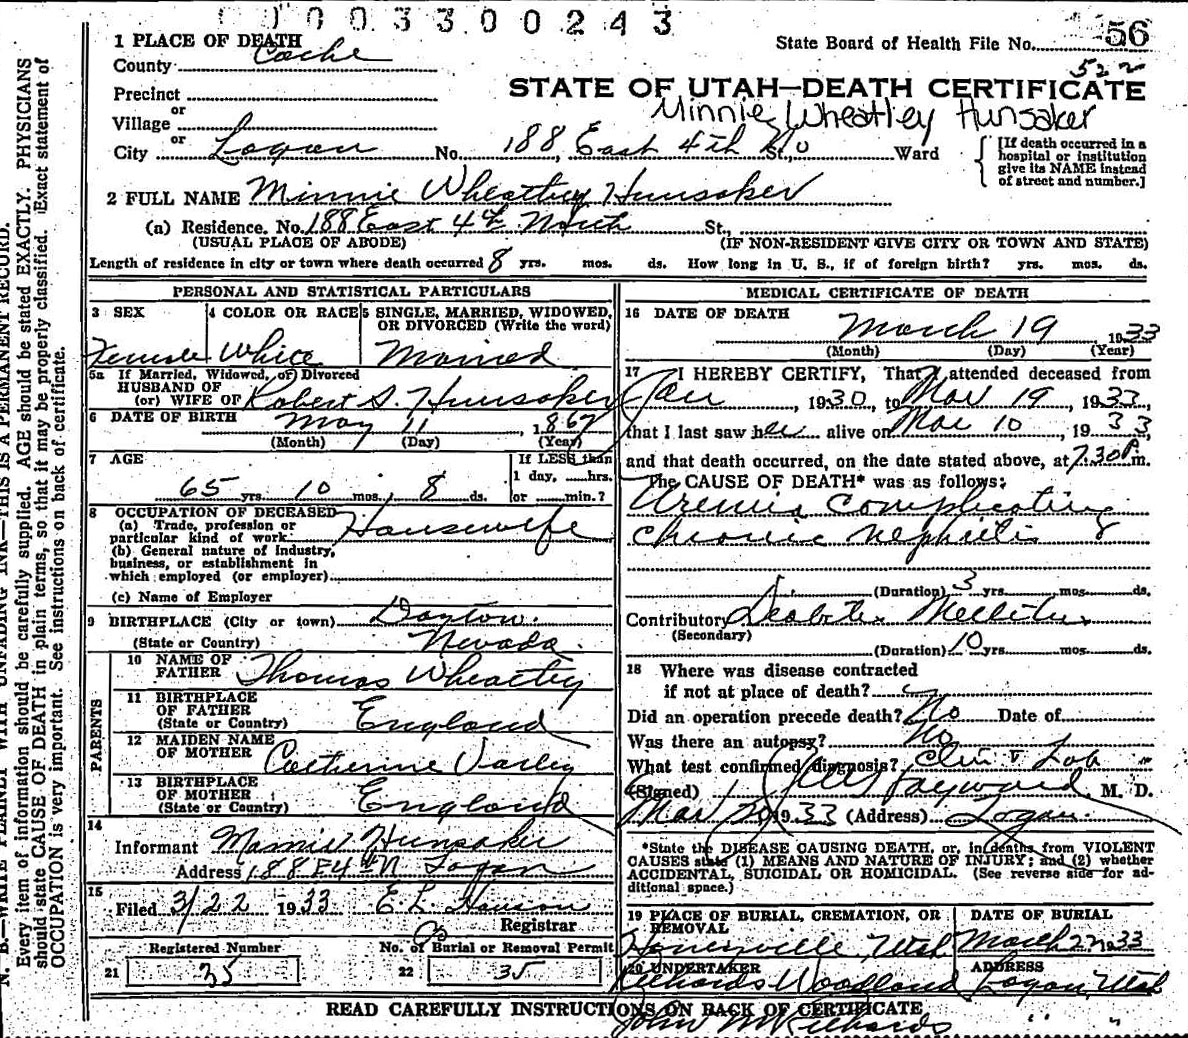 0003300243
State Board of Health File No. 56
522
1 PLACE OF DEATH
County Cache
STATE OF UTAH—DEATH CERTIFICATE
Precinct
Minnie Wheatley Hunsaker
or
Village
or
City Logan No. 188 East 4th No St., Ward
[If death occurred in a hospital or institution give its NAME instead of street and number.]
2 FULL NAME Minnie Wheatley Hunsaker
(a) Residence. No. 188 East 4th North St.,
(USUAL PLACE OF ABODE) (IF NON-RESIDENT GIVE CITY OR TOWN AND STATE)
Length of residence in city or town where death occurred 8 yrs. mos. ds. How long in U. S., if of foreign birth? yrs. mos. ds.
PERSONAL AND STATISTICAL PARTICULARS
3 SEX 4 COLOR OR RACE 5 SINGLE, MARRIED, WIDOWED, OR DIVORCED (Write the word)
Female White Married
5a If Married, Widowed, or Divorced
HUSBAND OF
(or) WIFE OF Robert S. Hunsaker
6 DATE OF BIRTH May 11 1867
(Month) (Day) (Year)
7 AGE If LESS than
1 day, hrs.
65 yrs. 10 mos. 8 ds. or min.?
8 OCCUPATION OF DECEASED
(a) Trade, profession or
particular kind of work Housewife
(b) General nature of industry,
business, or establishment in
which employed (or employer)
(c) Name of Employer
9 BIRTHPLACE (City or town) Dayton.
(State or Country) Nevada.
PARENTS
10 NAME OF
FATHER Thomas Wheatley
11 BIRTHPLACE
OF FATHER
(State or Country) England
12 MAIDEN NAME
OF MOTHER Catherine Varley
13 BIRTHPLACE
OF MOTHER
(State or Country) England
14
Informant Mamie Hunsaker
Address 188 E 4th N Logan
15
Filed 3/22 1933 E. L. Hanson
Registrar
Registered Number No. of Burial or Removal Permit
21 35 22 35
MEDICAL CERTIFICATE OF DEATH
16 DATE OF DEATH
March 19 1933
(Month) (Day) (Year)
17 I HEREBY CERTIFY, That I attended deceased from
Jan , 1930, to Mar 19, 1933,
that I last saw her alive on Mar 10, 1933,
and that death occurred, on the date stated above, at 7:30 P.m.
The CAUSE OF DEATH* was as follows:
Uremia Complicating
Chronic Nephritis
(Duration) 3 yrs. mos. ds.
Contributory Diabetes Mellitus
(Secondary)
(Duration) 10 yrs. mos. ds.
18 Where was disease contracted
if not at place of death?
Did an operation precede death? No Date of
Was there an autopsy? No
What test confirmed diagnosis? Clin & Lab
(Signed) Hayward, M. D.
Mar 20 1933 (Address) Logan.
*State the DISEASE CAUSING DEATH, or, in deaths from VIOLENT
CAUSES state (1) MEANS AND NATURE OF INJURY; and (2) whether
ACCIDENTAL, SUICIDAL OR HOMICIDAL. (See reverse side for ad-
ditional space.)
19 PLACE OF BURIAL, CREMATION, OR REMOVAL DATE OF BURIAL
Honeyville, Utah March 22 1933
20 UNDERTAKER ADDRESS
Richards Woodland Logan, Utah
READ CAREFULLY INSTRUCTIONS ON BACK OF CERTIFICATE
John M Richards " "
N. B.—WRITE PLAINLY WITH UNFADING INK—THIS IS A PERMANENT RECORD.
Every item of information should be carefully supplied. AGE should be stated EXACTLY. PHYSICIANS
should state CAUSE OF DEATH in plain terms, so that it may be properly classified. Exact statement of
OCCUPATION is very important. See instructions on back of certificate.